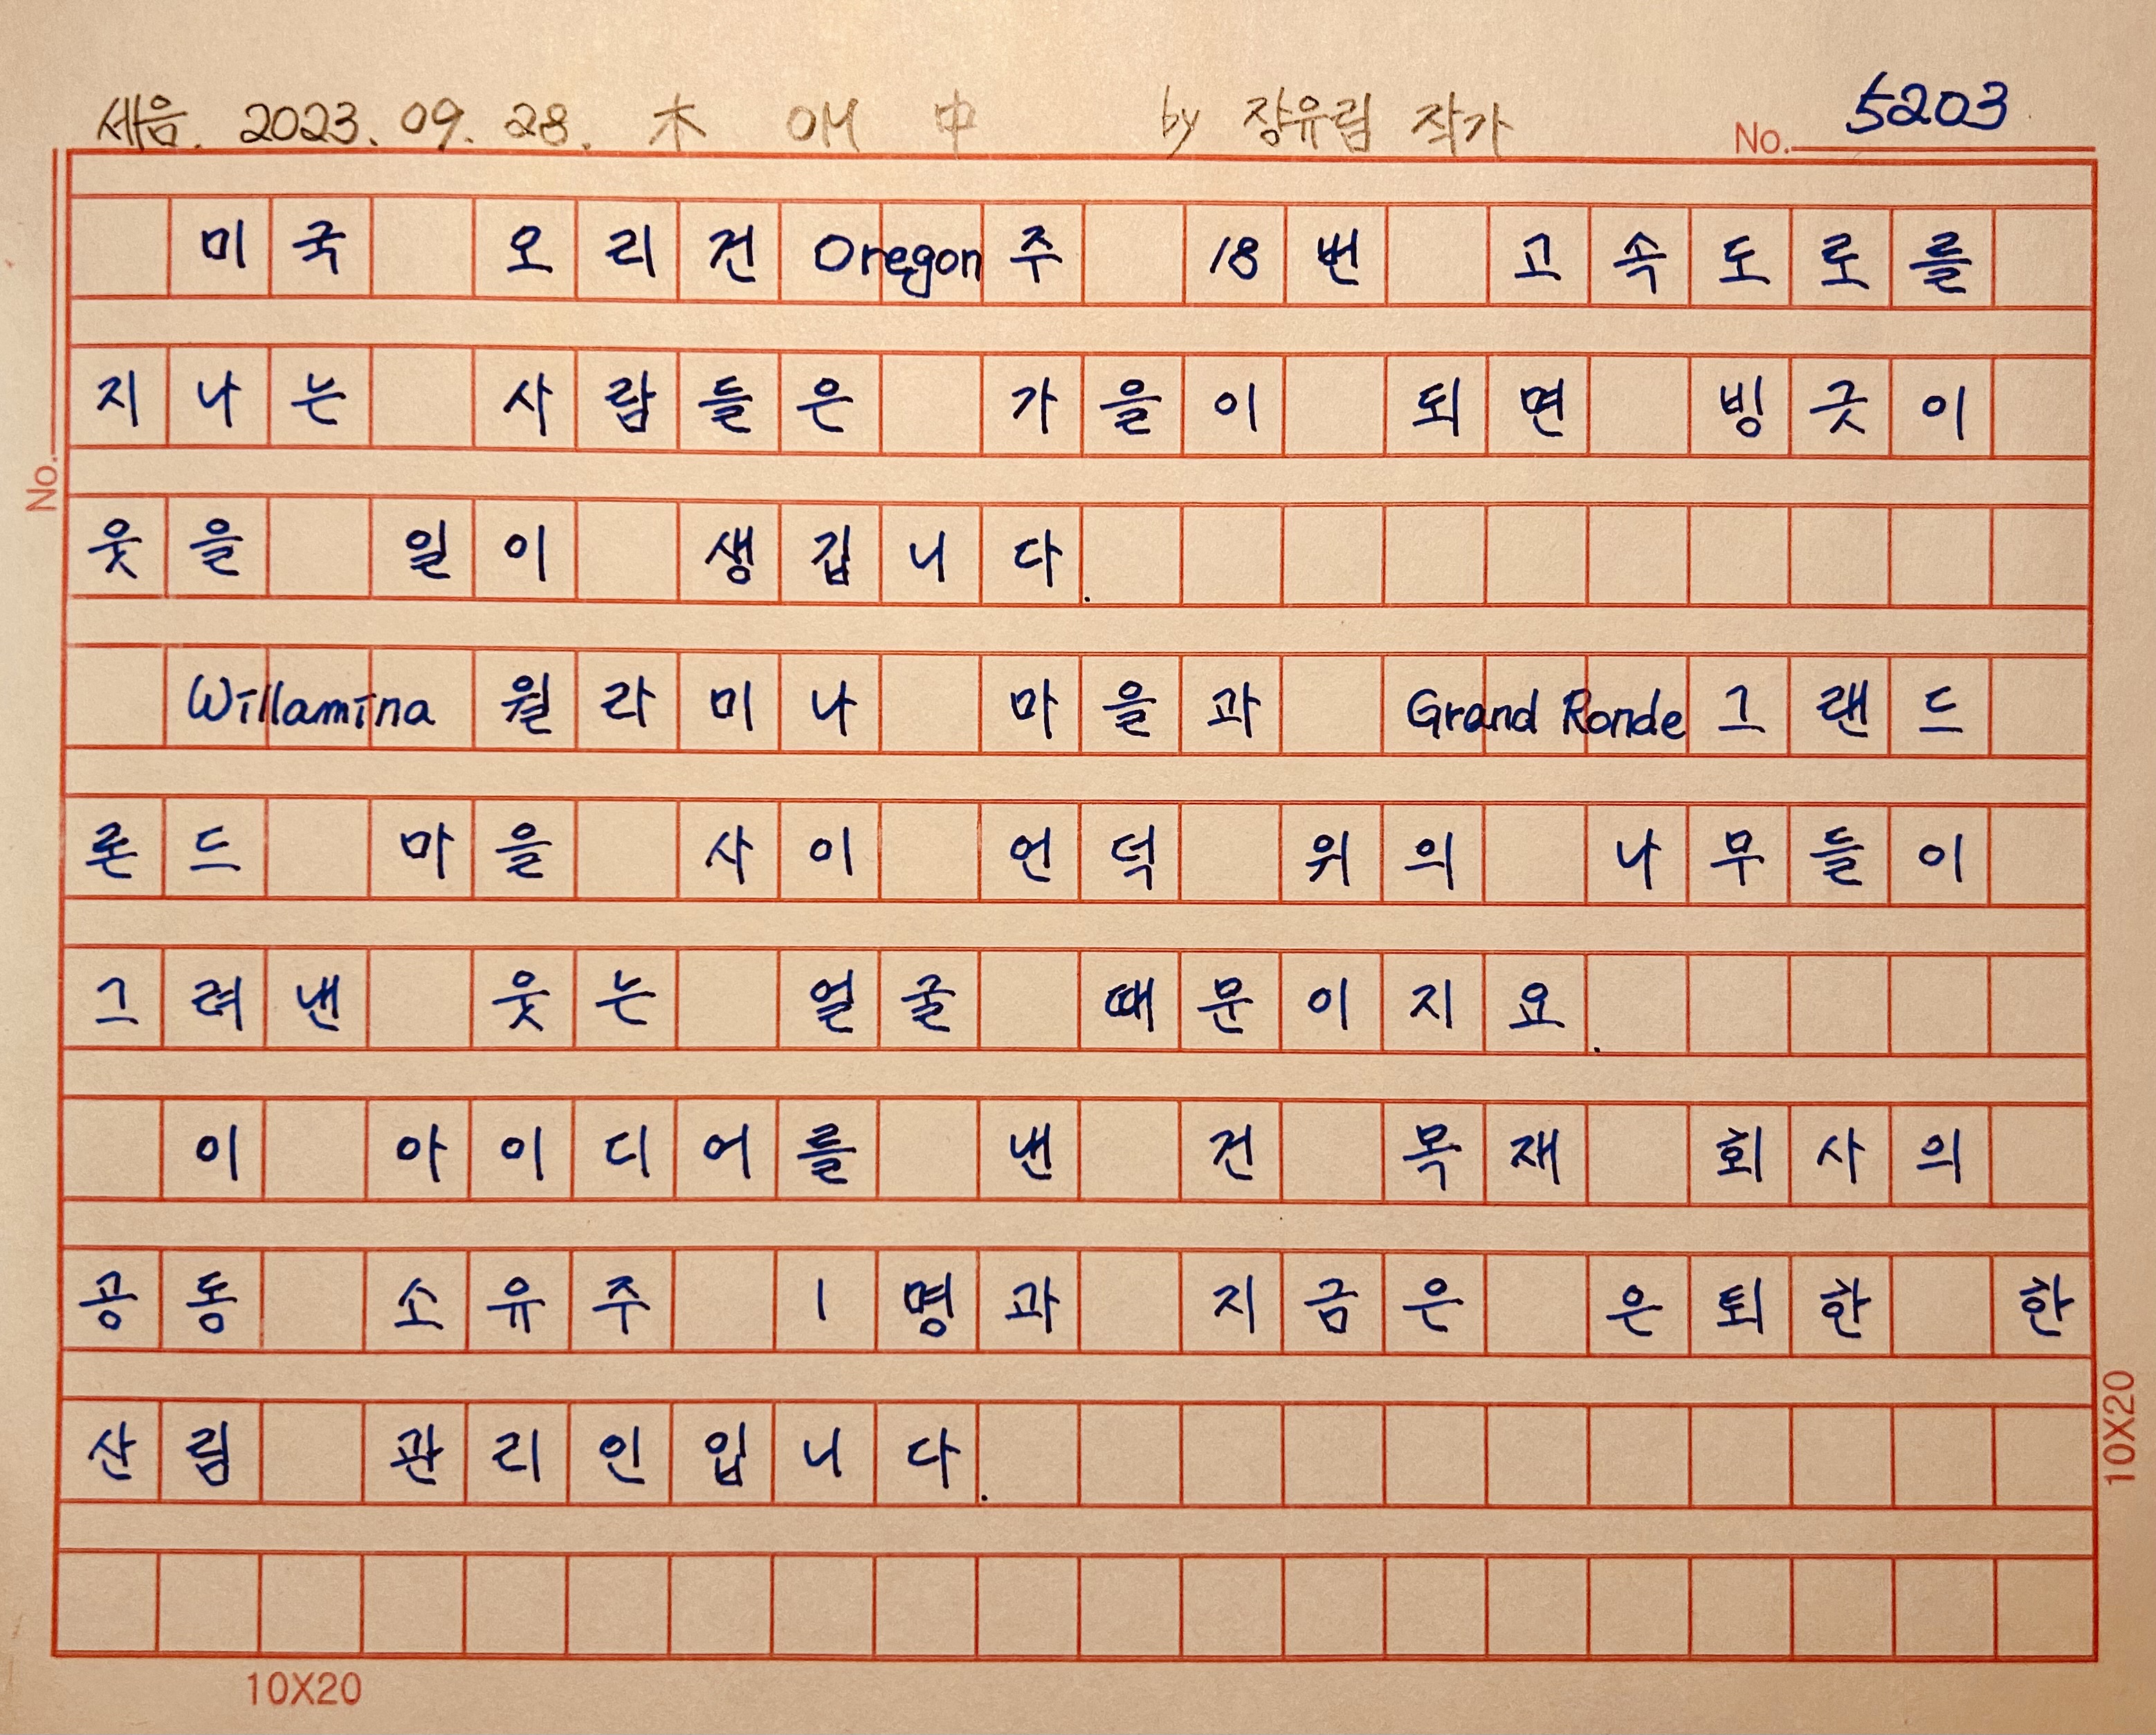 세음. 2023. 09. 28. 木 애 中 by 장유림 작가 No. 5203
미국 오리건 Oregon주 18번 고속도로를
지나는 사람들은 가을이 되면 빙긋이
No.
웃을 일이 생깁니다.
Willamina 윌라미나 마을과 Grand Ronde 그랜드
론드 마을 사이 언덕 위의 나무들이
그려낸 웃는 얼굴 때문이지요.
이 아이디어를 낸 건 목재 회사의
공동 소유주 1명과 지금은 은퇴한 한
산림 관리인입니다.
10X20
10X20